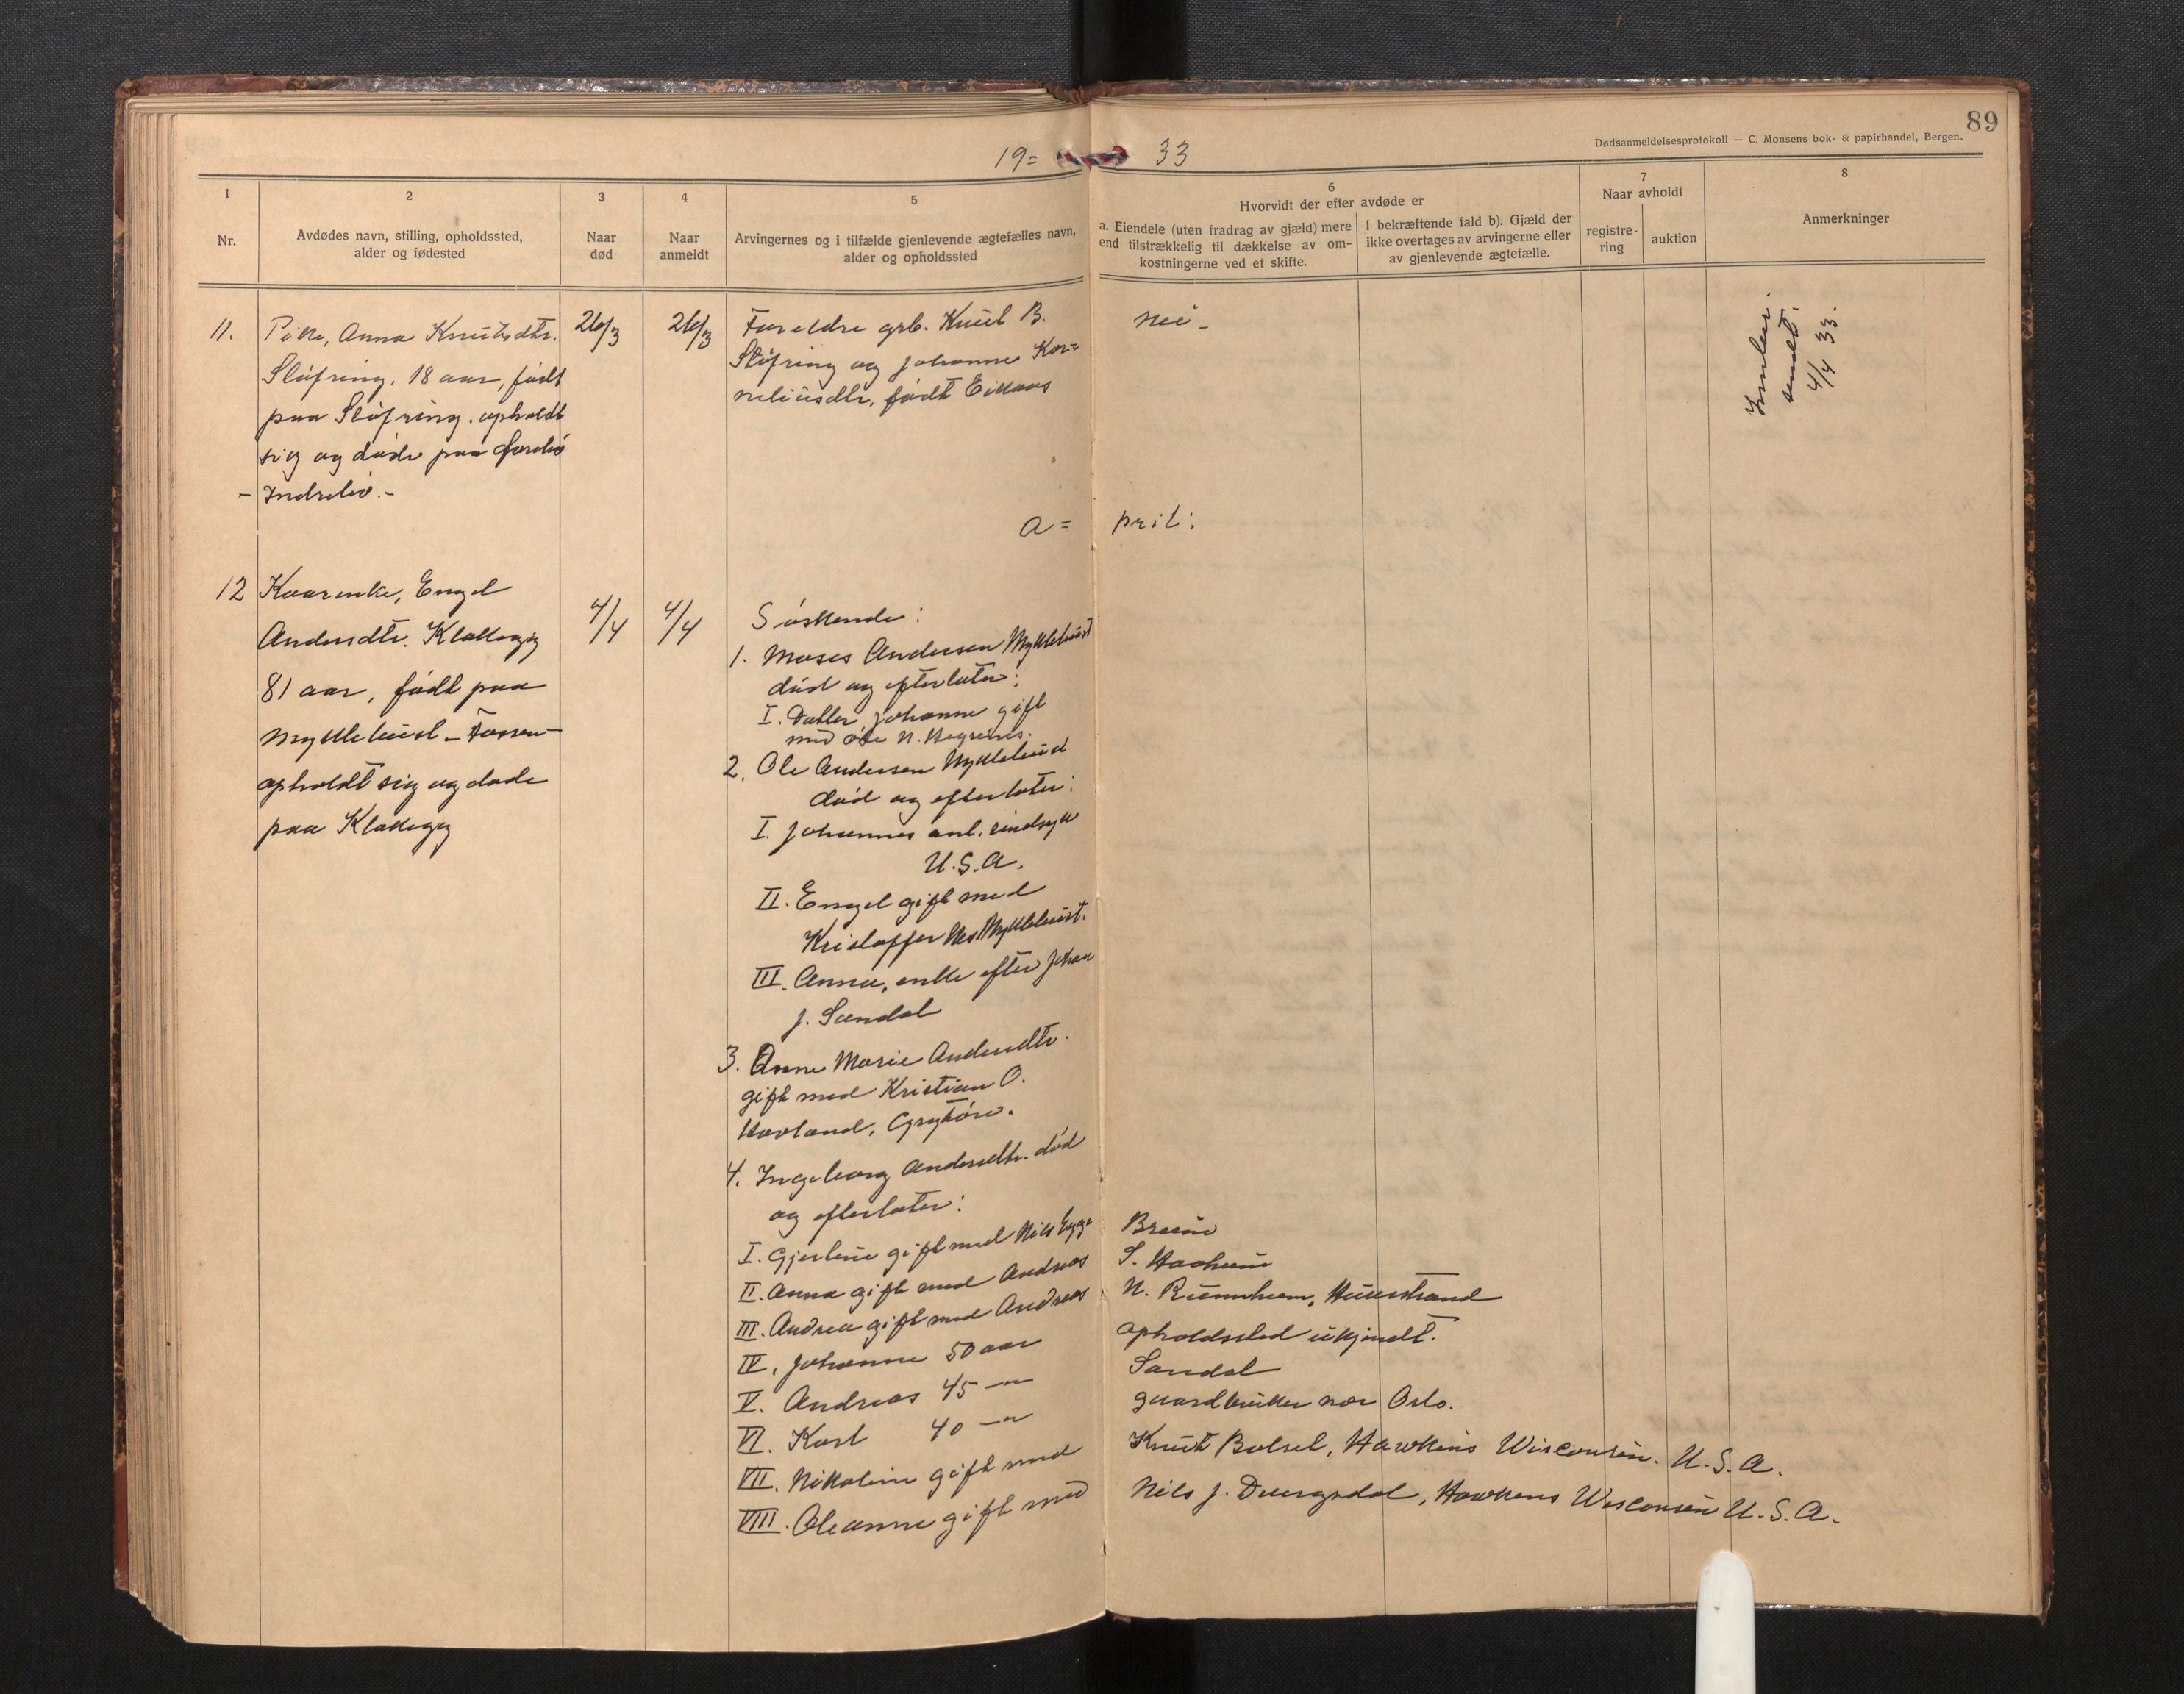 89
Dødsanmeldelsesprotokoll — C. Monsens bok- & papirhandel, Bergen.
19= 33
1
Nr.
2
Avdødes navn, stilling, opholdssted,
alder og fødested
3
Naar
død
4
Naar
anmeldt
5
Arvingernes og i tilfælde gjenlevende ægtefælles navn,
alder og opholdssted
6
Hvorvidt der efter avdøde er
a. Eiendele (uten fradrag av gjæld) mere
end tilstrækkelig til dækkelse av om-
kostningerne ved et skifte.
I bekræftende fald b). Gjæld der
ikke overtages av arvingerne eller
av gjenlevende ægtefælle.
7
Naar avholdt
registre-
ring
auktion
8
Anmerkninger
11.
Pike, Anna Knutsdtr.
Støfring, 18 aar, født
paa Støfring. opholdt
sig og døde paa
- Indrebø.-
26/3
26/3
Foreldre grb. Knut B.
Støfring og Johanne Kor=
neliusdtr. født Eikaas
nei -
sendt.
4/4 33.
A= pril:
12
Kaarenke, Engel
Andersdtr. Klakegg
81 aar, født paa
Myklebust - Fossen -
opholdt sig og døde
paa Klakegg
4/4
4/4
Søskende:
1. Moses Andersen Myklebust
død og efterlater:
I. Datter Johanne gift
med Ole N.
2. Ole Andersen Myklebust
død og efterlater:
I. Johannes anl. sindsyk
U.S.A.
II. Engel gift med
Kristoffer Myklebust.
III. Anna, enke efter Johan
J. Sandal
3. Anne Marie Andersdtr.
gift med Kristian O.
Hovland,
4. Ingeborg Andersdtr. død
og efterlater:
I. Gjertine gift med Nils Egge Breim
II. Anna gift med Andreas S. Haaheim
III. Andrea gift med Andreas N.
IV. Johanne 50 aar opholdssted ukjendt.
V. Andreas 45 —"— Sandal
VI. Karl 40 —"— gaardbruker nær Oslo.
VII. Nikoline gift med Knut Bolset, Hawkins Wisconsin. U.S.A.
VIII. Oleanne gift med Nils J. Dvergsdal, Hawkens Wisconsin U.S.A.